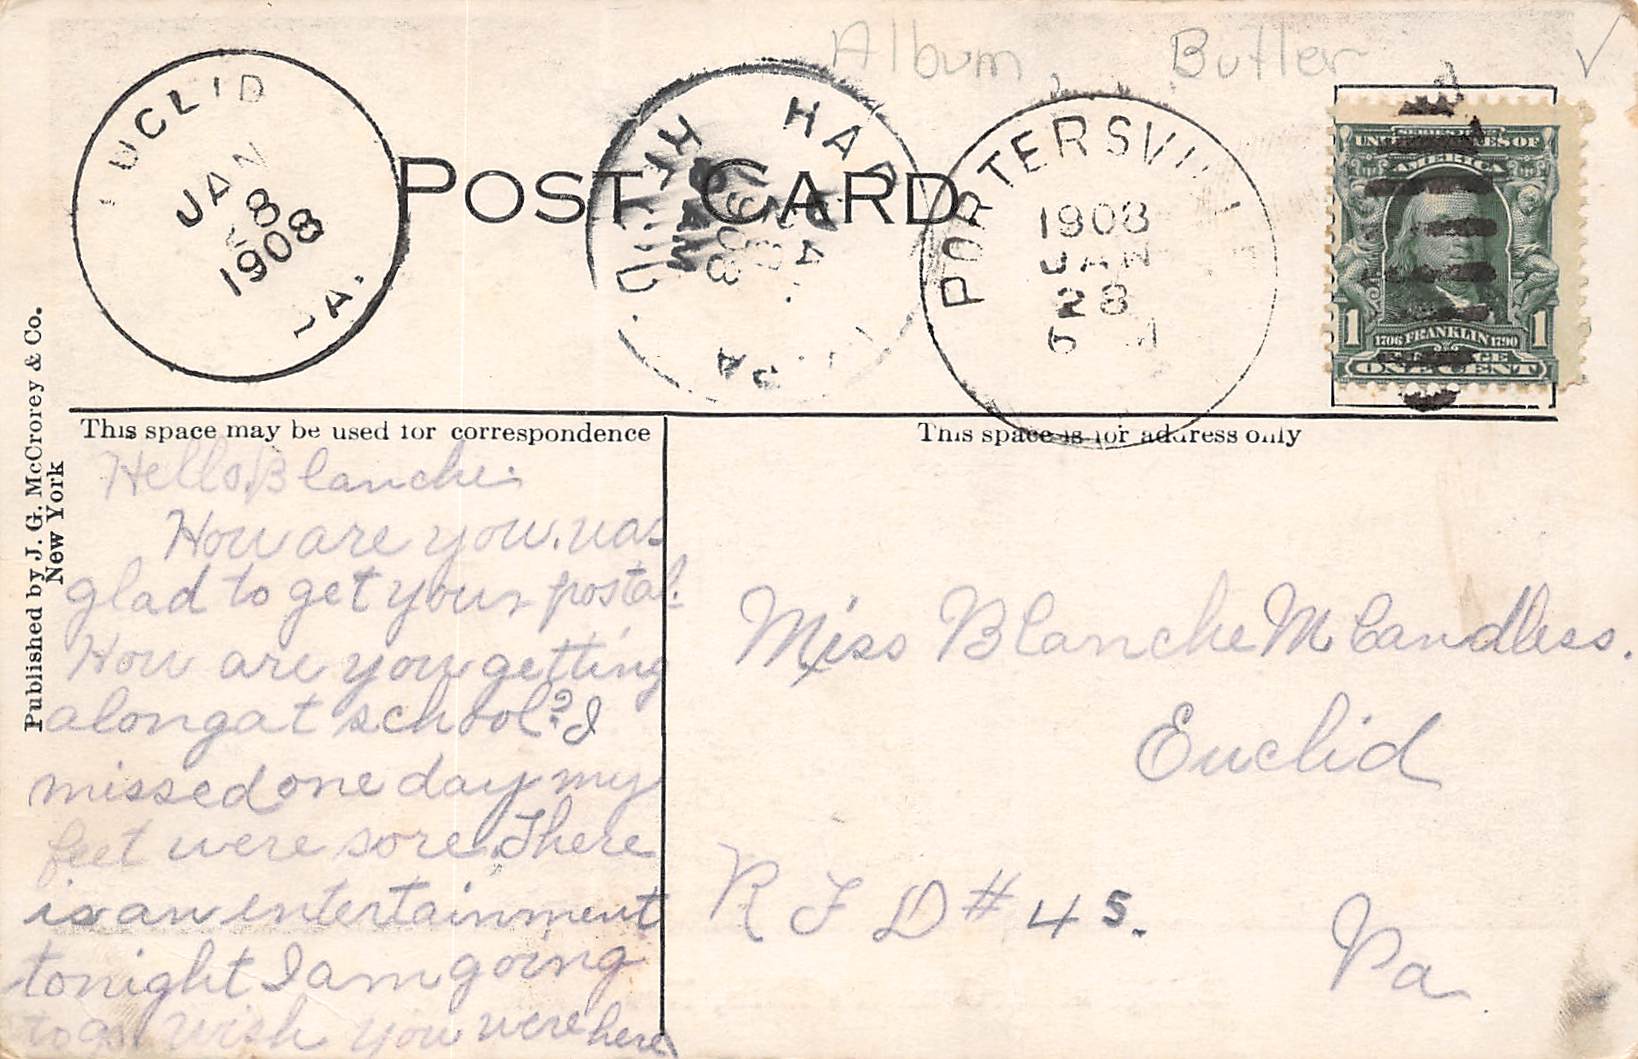 Album Butler
EUCLID
JAN
28
1908
PA.
HARMONY
1908
PA
PORTERSVILL
1908
JAN
28
POST CARD
SERIES 1902
UNITED STATES OF
AMERICA
1 1
1706 FRANKLIN 1790
POSTAGE
ONE CENT
Published by J. G. McCrorey & Co.
New York
This space may be used for correspondence
This space is for address only
Hello, Blanche.
How are you. was
glad to get your postal.
How are you getting
along at school? I
missed one day my
feet were sore. There
is an entertainment
tonight I am going
to go. Wish you were here
Miss Blanche McCandless.
Euclid
R F D # 45.
Pa